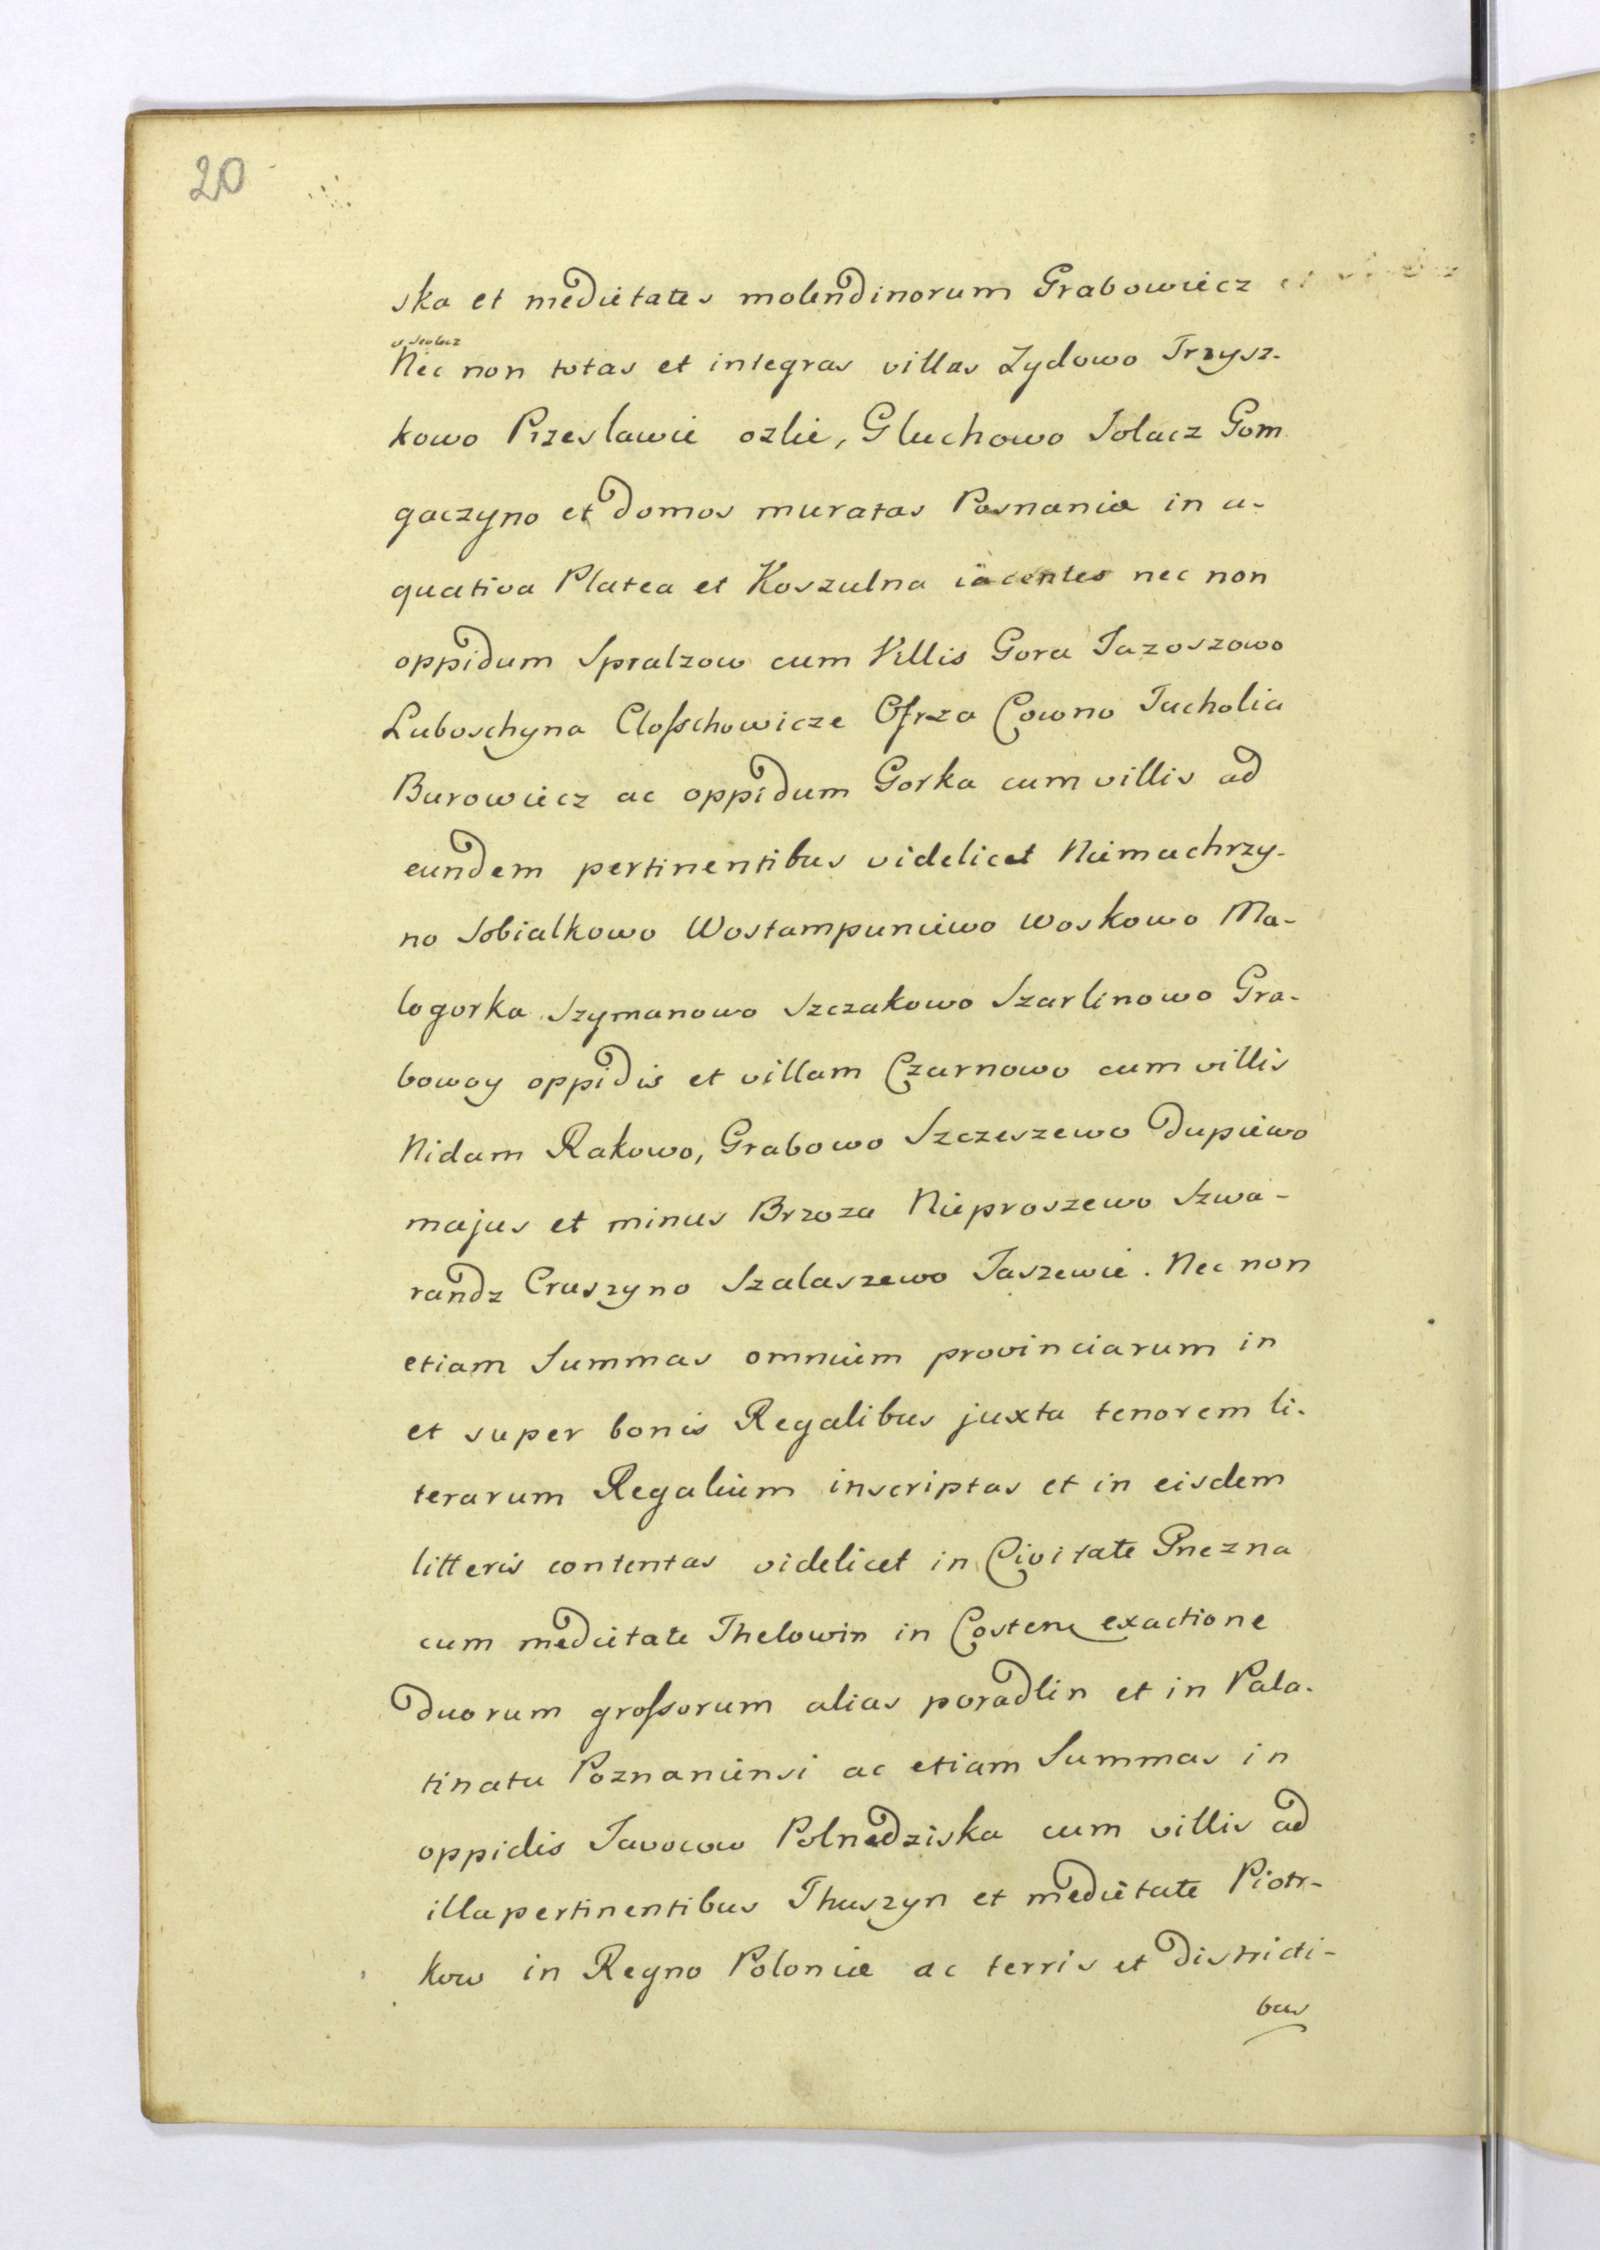 20
ska et medietates molendinorum Grabowiecz et
Nec non totas et integras villas Zydowo Trzysz-
kowo Przeslawie ozlie, Gluchowo Solacz Gom
gaczyno et domos muratas Posnaniæ in a-
quativa Platea et Koszulna iacentes nec non
oppidum Spralzow cum Villis Gora Jazoszowo
Luboschyna Closschowicze Ofrza Cowno Tucholia
Burowiecz ac oppidum Gorka cum villis ad
eundem pertinentibus videlicet Niemachrzy-
no Sobialkowo Wostampuniewo Woskowo Ma-
logorka Szymanowo Szczakowo Szarlinowo Gra-
bowoy oppidis et villam Czarnowo cum villis
Nidam Rakowo, Grabowo Szczeszewo Dupiewo
majus et minus Brzoza Nieproszewo Szwa-
randz Cruszyno Szalaszewo Jaszewie. Nec non
etiam Summas omnium provinciarum in
et super bonis Regalibus juxta tenorem li-
terarum Regalium inscriptas et in eisdem
litteris contentas videlicet in Civitate Gnezna
cum medietate Thelowin in Costen exactione
duorum grossorum alias poradlin et in Pala-
tinatu Poznaniensi ac etiam Summas in
oppidis Javocow Polnedziska cum villis ad
illa pertinentibus Thuszyn et medietate Piotr-
kow in Regno Poloniæ ac terris et districti-
bus